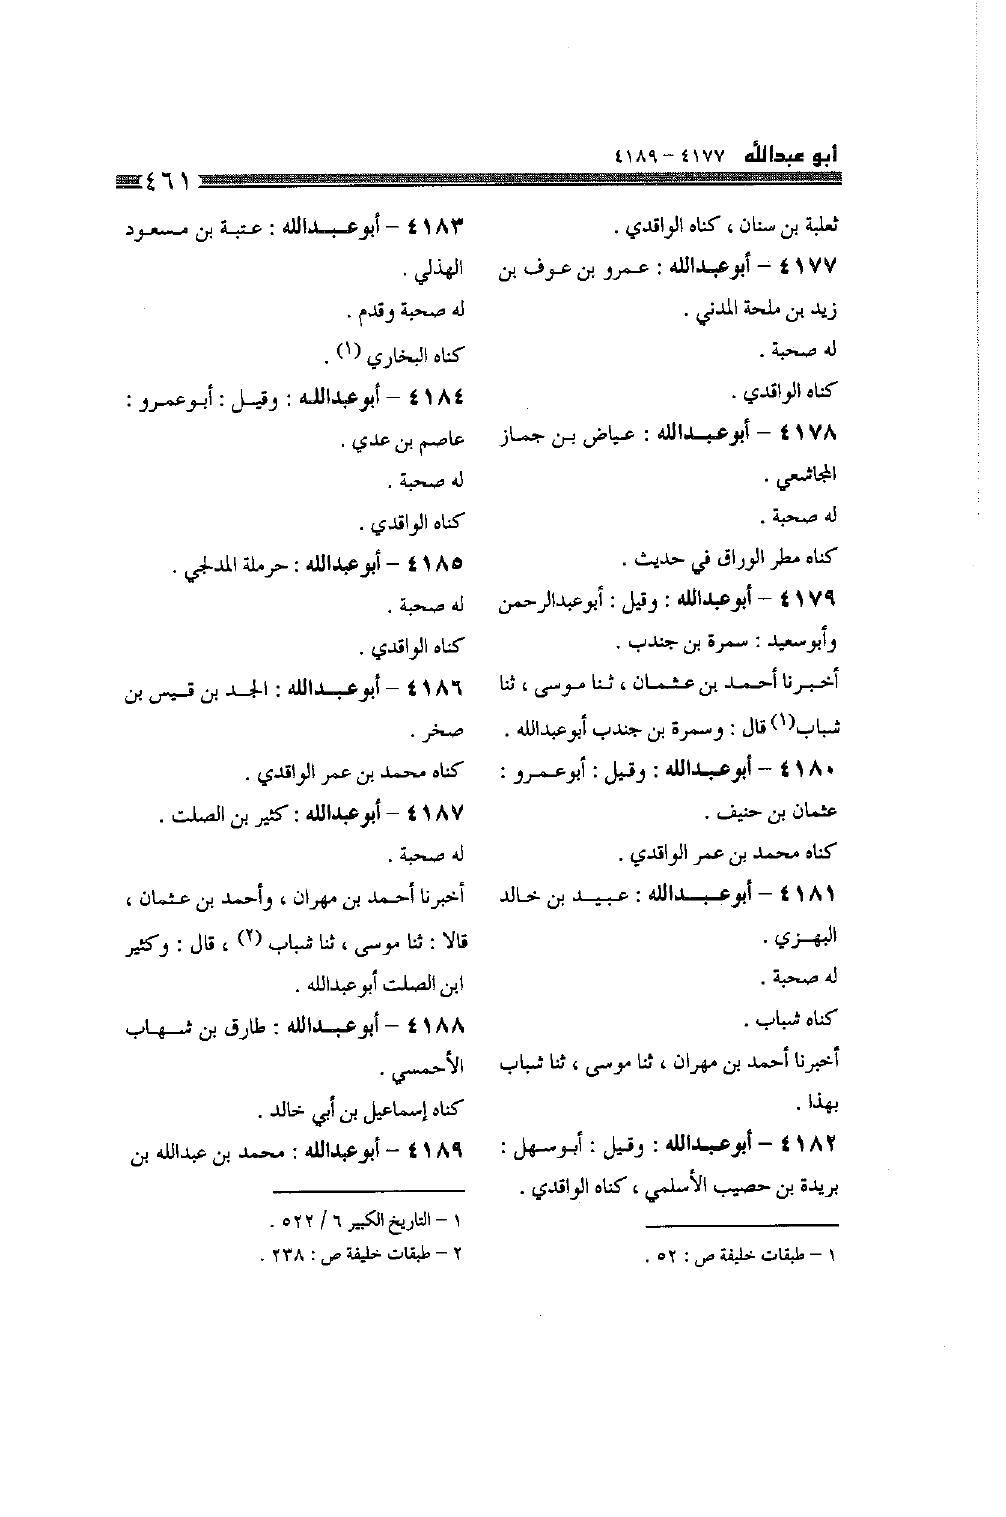 أبو عبدالله ٤١٧٧ - ٤١٨٩
٤٦١
ثعلبة بن سنان ، كناه الواقدي .
٤١٧٧ - أبو عبدالله : عمرو بن عوف بن
زيد بن ملحة المدني .
له صحبة .
كناه الواقدي .
٤١٧٨ - أبو عبدالله : عياض بن جماز
المجاشعي .
له صحبة .
كناه مطر الوراق في حديث .
٤١٧٩ - أبو عبدالله : وقيل : أبو عبدالرحمن
وأبو سعيد : سمرة بن جندب .
أخبرنا أحمد بن عثمان ، ثنا موسى ، ثنا
شباب(١) قال : وسمرة بن جندب أبو عبدالله .
٤١٨٠ - أبو عبدالله : وقيل : أبو عمرو :
عثمان بن حنيف .
كناه محمد بن عمر الواقدي .
٤١٨١ - أبو عبدالله : عبيد بن خالد
البهزي .
له صحبة .
كناه شباب .
أخبرنا أحمد بن مهران ، ثنا موسى ، ثنا شباب
بهذا .
٤١٨٢ - أبو عبدالله : وقيل : أبو سهل :
بريدة بن حصيب الأسلمي ، كناه الواقدي .
١ - طبقات خليفة ص : ٥٢ .
٤١٨٣ - أبو عبدالله : عتبة بن مسعود
الهذلي .
له صحبة وقدم .
كناه البخاري (١) .
٤١٨٤ - أبو عبدالله : وقيل : أبو عمرو :
عاصم بن عدي .
له صحبة .
كناه الواقدي .
٤١٨٥ - أبو عبدالله : حرملة المدلجي .
له صحبة .
كناه الواقدي .
٤١٨٦ - أبو عبدالله : الجد بن قيس بن
صخر .
كناه محمد بن عمر الواقدي .
٤١٨٧ - أبو عبدالله : كثير بن الصلت .
له صحبة .
أخبرنا أحمد بن مهران ، وأحمد بن عثمان ،
قالا : ثنا موسى ، ثنا شباب (٢) ، قال : وكثير
ابن الصلت أبو عبدالله .
٤١٨٨ - أبو عبدالله : طارق بن شهاب
الأحمسي .
كناه إسماعيل بن أبي خالد .
٤١٨٩ - أبو عبدالله : محمد بن عبدالله بن
١ - التاريخ الكبير ٦ / ٥٢٢ .
٢ - طبقات خليفة ص : ٢٣٨ .